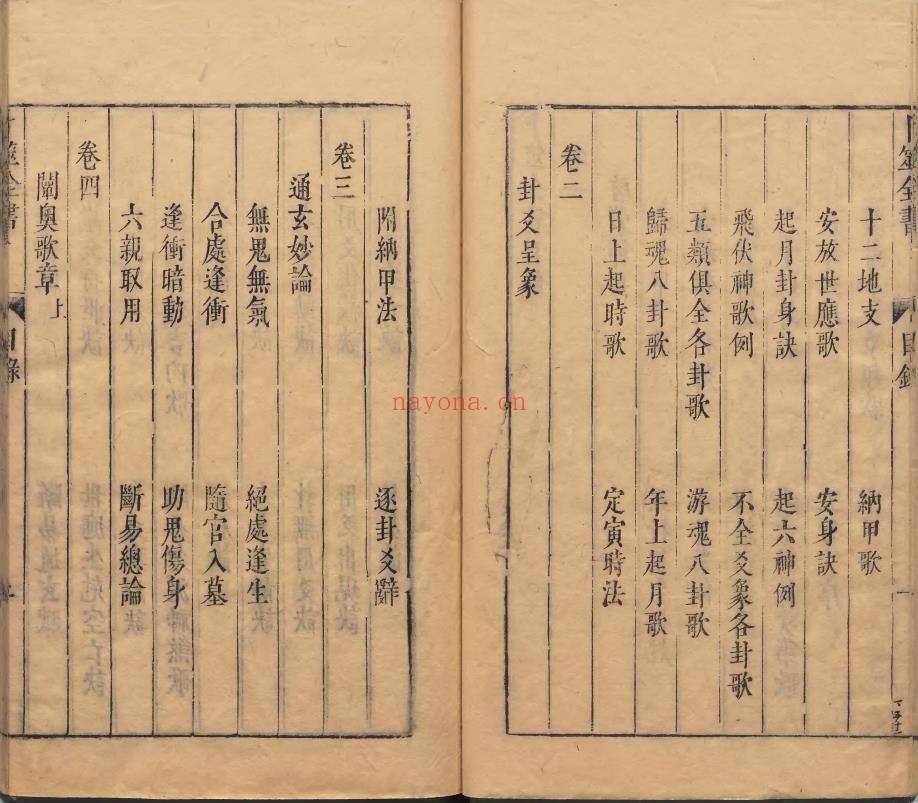 十二地支　納甲歌
安放世應歌　安身訣
起月卦身訣　起六神例
飛伏神歌例　不全爻象各卦歌
五類俱全各卦歌　游魂八卦歌
歸魂八卦歌　年上起月歌
日上起時歌　定寅時法
卷二
卦爻呈象
附納甲法　逐卦爻辭
卷三
通玄妙論
無鬼無氣　絕處逢生
合處逢衝　隨官入墓
逢衝暗動　助鬼傷身
六親取用　斷易總論
卷四
闡奧歌章上
nayona.cn